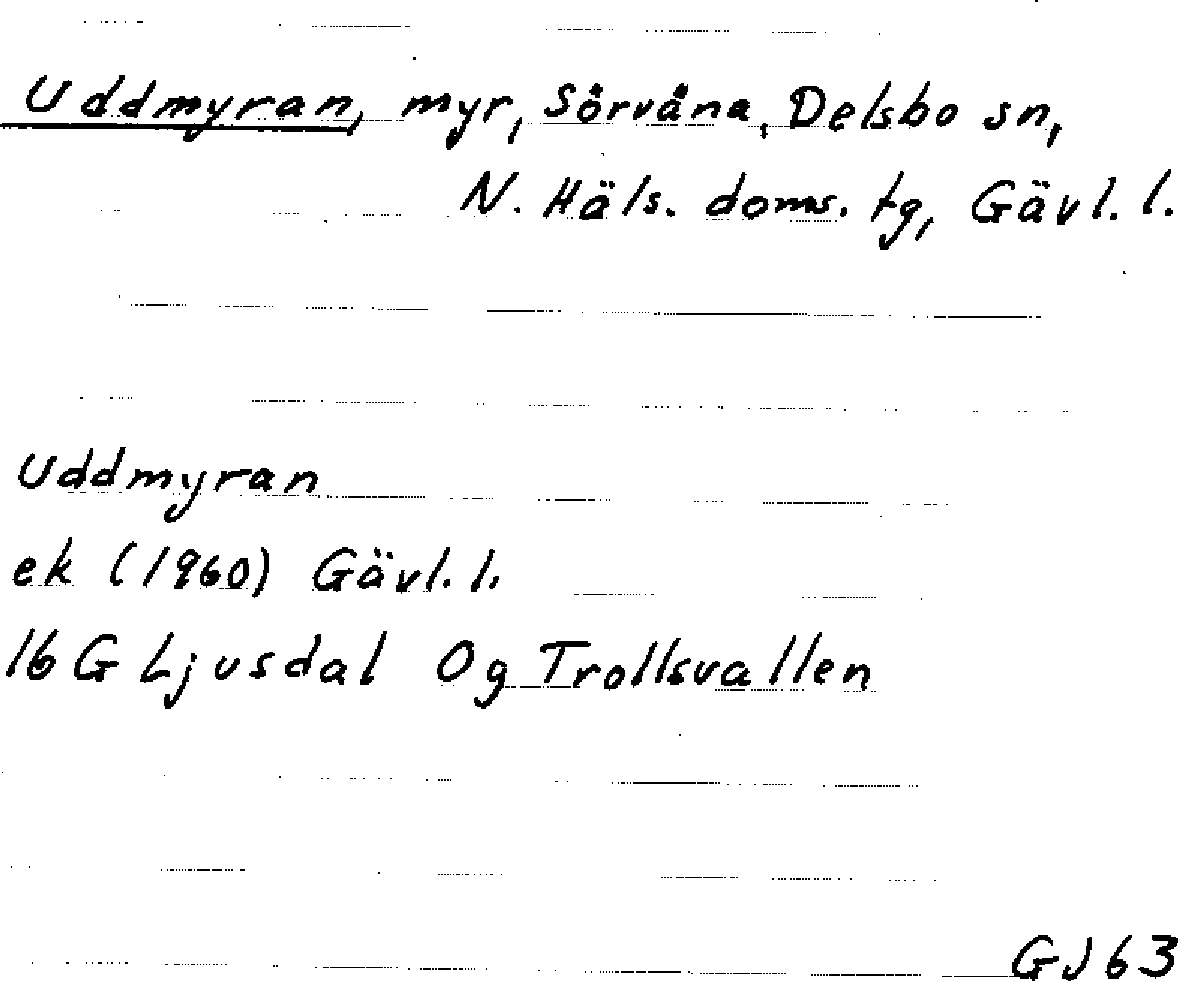 Uddmyran, myr, Sörvåna, Delsbo sn,
N. Häls. doms. tg, Gävl. l.
Uddmyran
ek (1960) Gävl. l.
16 G Ljusdal 0g Trollsvallen
GJ 63